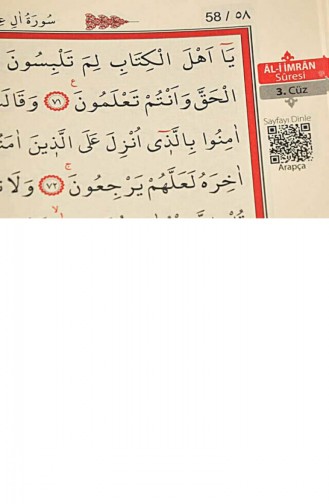 سُورَةُ اٰلِ
58 / ٥٨
يَٓا اَهْلَ الْكِتَابِ لِمَ تَلْبِسُونَ
الْحَقَّ وَاَنْتُمْ تَعْلَمُونَ ۚ ﴿٧١﴾ وَقَالَتْ
اٰمِنُوا بِالَّذ۪ٓي اُنْزِلَ عَلَى الَّذ۪ينَ
اٰخِرَهُ لَعَلَّهُمْ يَرْجِعُونَ ۚ ﴿٧٢﴾ وَلَا
ÂL-İ İMRÂN
Sûresi
3. Cüz
Sayfayı Dinle
Arapça